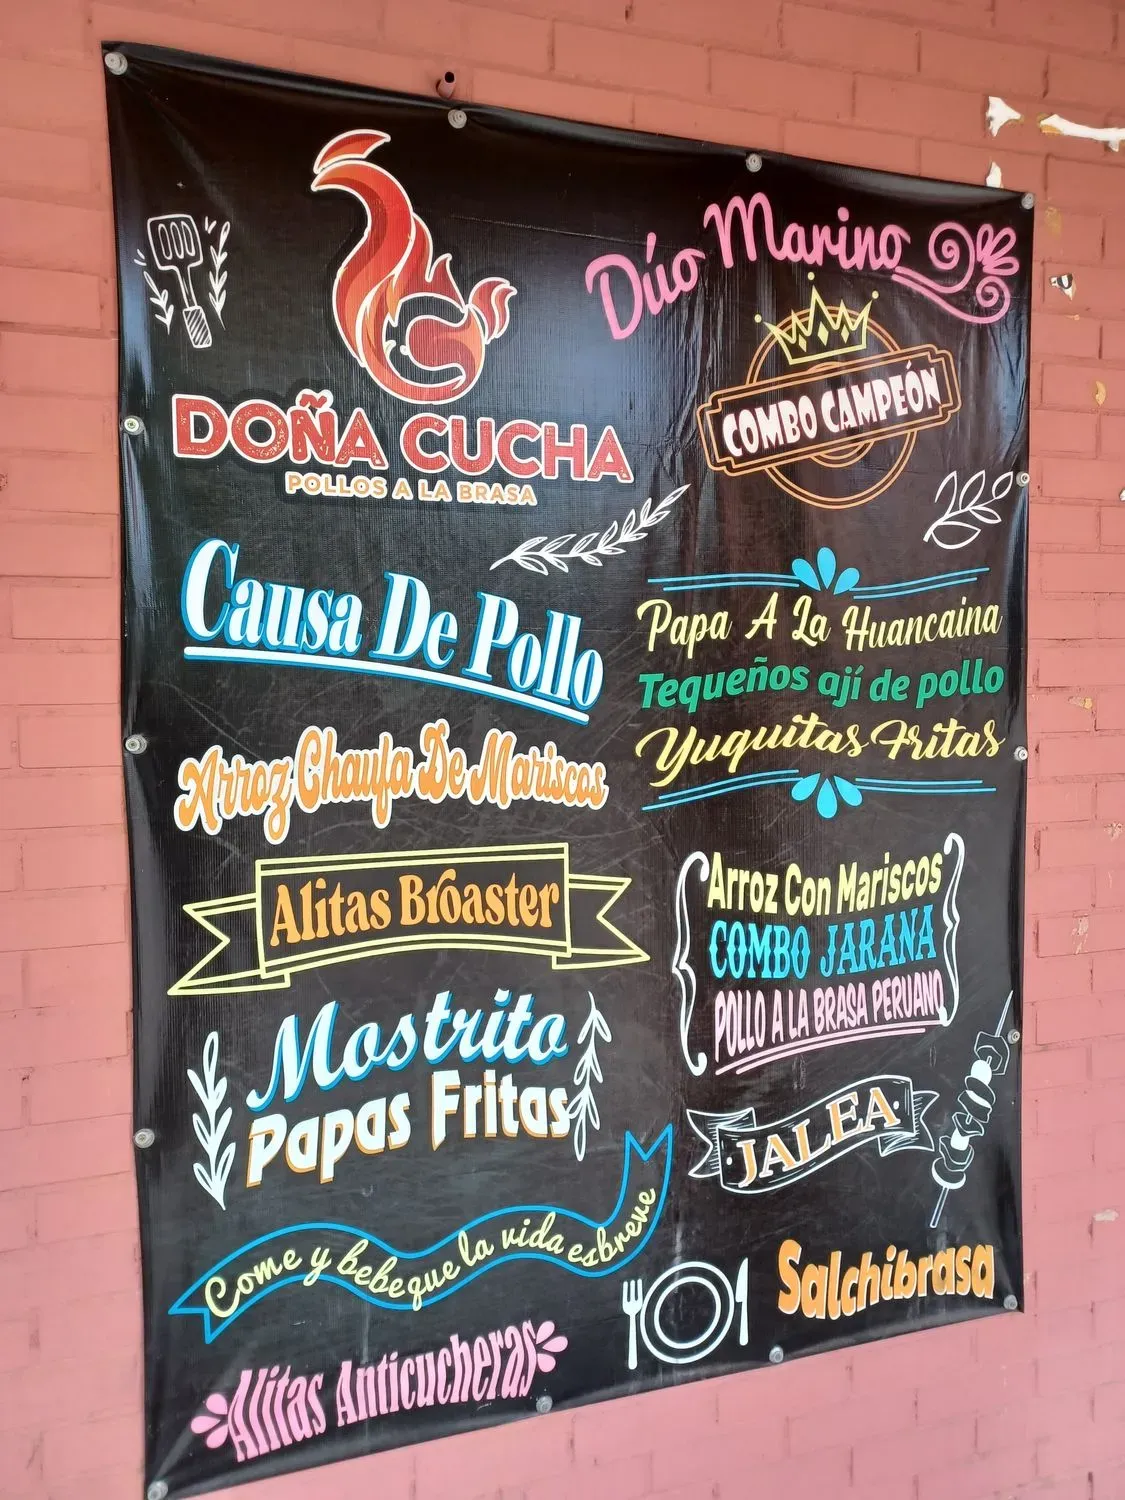 DOÑA CUCHA
POLLOS A LA BRASA
Dúo Marino
COMBO CAMPEÓN
Causa De Pollo
Papa A La Huancaina
Tequeños ají de pollo
Yuquitas Fritas
Arroz Chaufa De Mariscos
Alitas Broaster
Arroz Con Mariscos
COMBO JARANA
POLLO A LA BRASA PERUANO
Mostrito
Papas Fritas
JALEA
Come y bebe que la vida es breve
Salchibrasa
Alitas Anticucheras